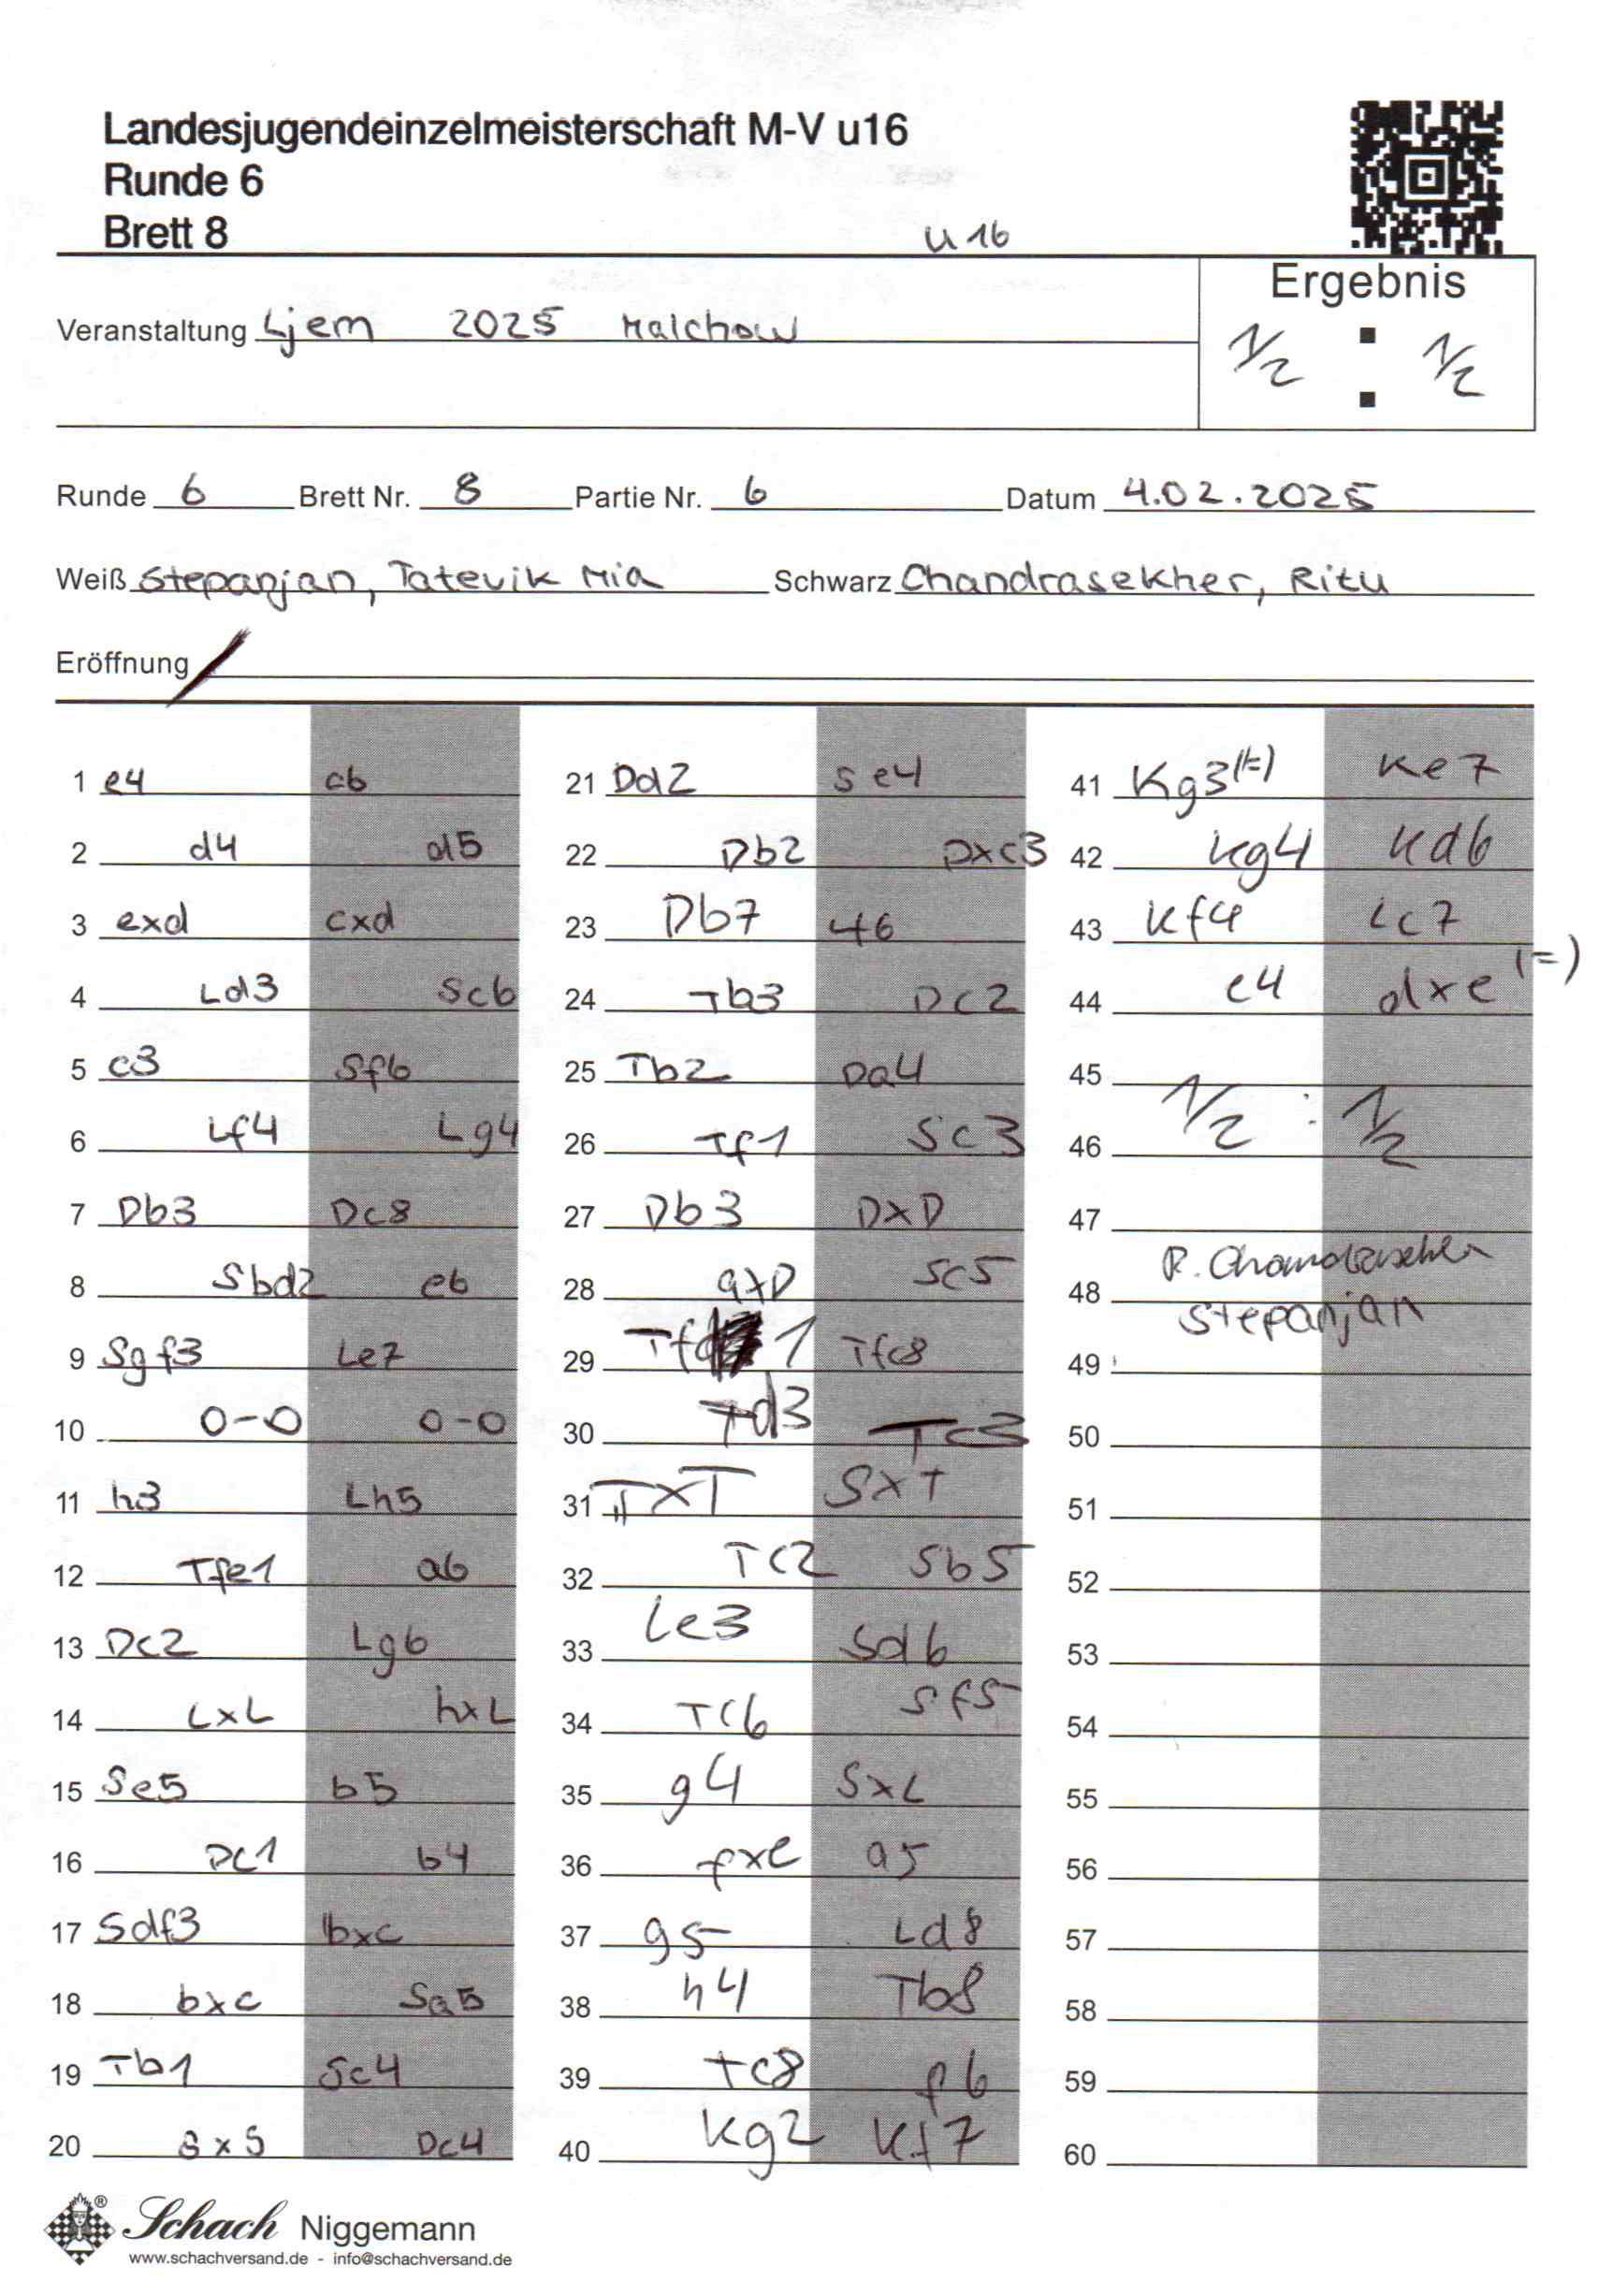 Landesjugendeinzelmeisterschaft M-V u16
Runde 6
Brett 8
u16
Ergebnis
Veranstaltung Ljem 2025 Malchow
1/2 : 1/2
Runde 6 Brett Nr. 8 Partie Nr. 6 Datum 4.02.2025
Weiß Stepanjan, Tatevik Mia Schwarz Chandrasekher, Ritu
Eröffnung /
1 e4 c6
2 d4 d5
3 exd cxd
4 Ld3 Sc6
5 c3 Sf6
6 Lf4 Lg4
7 Db3 Dc8
8 Sbd2 e6
9 Sgf3 Le7
10 0-0 0-0
11 h3 Lh5
12 Tfe1 a6
13 Dc2 Lg6
14 LxL hxL
15 Se5 b5
16 Dc1 b4
17 Sdf3 bxc
18 bxc Sa5
19 Tb1 Sc4
20 SxS Dc4
21 Dd2 Se4
22 Db2 Dxc3
23 Db7 46
24 Tb3 Dc2
25 Tb2 Da4
26 Tf1 Sc3
27 Db3 DxD
28 axD Sc5
29 Tf 1 Tfc8
30 Td3 Tc3
31 TxT SxT
32 Tc2 Sb5
33 Le3 Sd6
34 Tc6 Sf5
35 g4 SxL
36 fxe a5
37 g5 Ld8
38 h4 Tb8
39 Tc8 f6
40 Kg2 Kf7
41 Kg3(=) Ke7
42 Kg4 Kd6
43 Kf4 Lc7
44 e4 dxe (=)
45
1/2 : 1/2
46
47
R. Chandrasekher
48
Stepanjan
49
50
51
52
53
54
55
56
57
58
59
60
Schach Niggemann
www.schachversand.de - info@schachversand.de